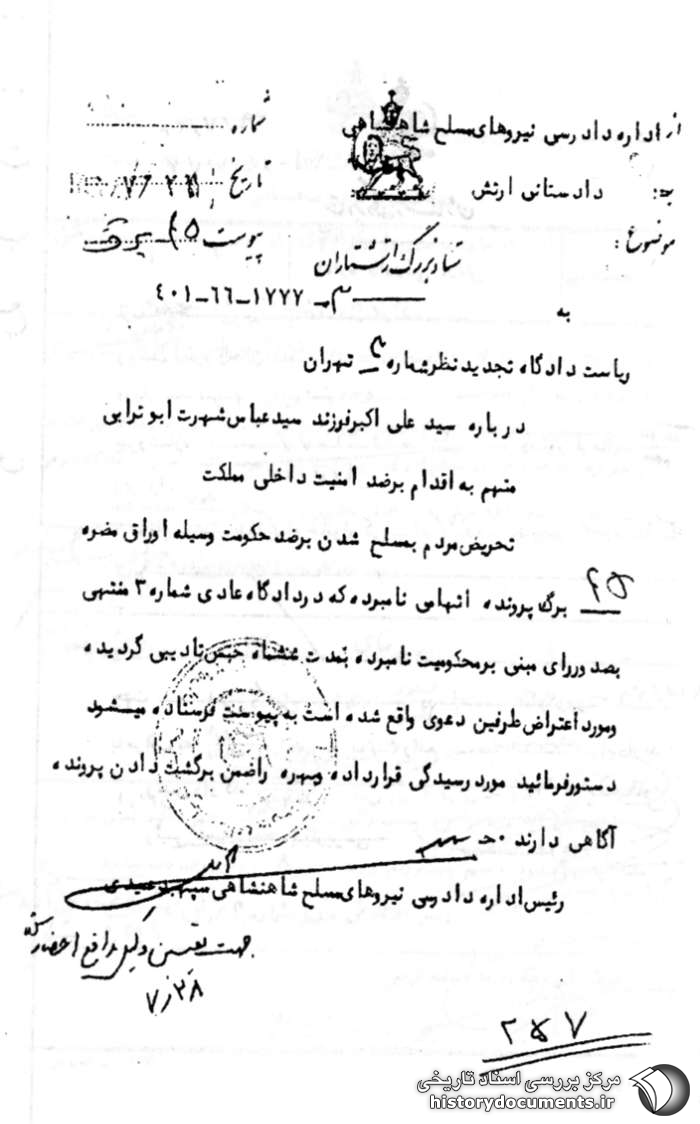 از اداره دادرسی نیروهای مسلح شاهنشاهی
شماره
به: دادستانی ارتش
تاریخ
موضوع:
پیوست ۴۵ برگ
ستاد بزرگ ارتشتاران
۴۰۱-۶۶-۱۷۷۷
به
ریاست دادگاه تجدید نظر شماره تهران
درباره سید علی اکبر فرزند سید عباس شهرت ابوترابی
متهم به اقدام بر ضد امنیت داخلی مملکت
تحریض مردم بمسلح شدن بر ضد حکومت وسیله اوراق مضره
۴۵ برگ پرونده اتهامی نامبرده که در دادگاه عادی شماره ۳ منتهی
بصدور رای مبنی بر محکومیت نامبرده بمدت ششماه حبس تادیبی گردیده
و مورد اعتراض طرفین دعوی واقع شده است به پیوست فرستاده میشود
دستور فرمائید مورد رسیدگی قرار داده و بهره را ضمن برگشت دادن پرونده
آگاهی دارند
رئیس اداره دادرسی نیروهای مسلح شاهنشاهی سپهبد
جهت تعیین وکیل مدافع احضار
۷٫۲۸
۲۵۷
مرکز بررسی اسناد تاریخی
historydocuments.ir